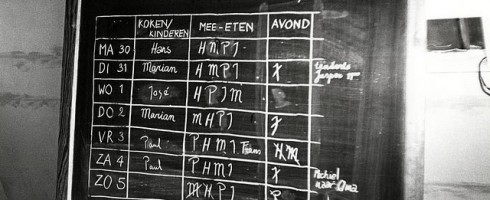 KOKEN/
KINDEREN MEE-ETEN AVOND
MA 30 Hans H M P J
DI 31 Marian H M P J J
WO 1 José H P J M
DO 2 Marian M H P J J
VR 3 Paul P H M J Frans H M
ZA 4 Paul P H M J J
ZO 5 H P J
Michiel
naar Oma